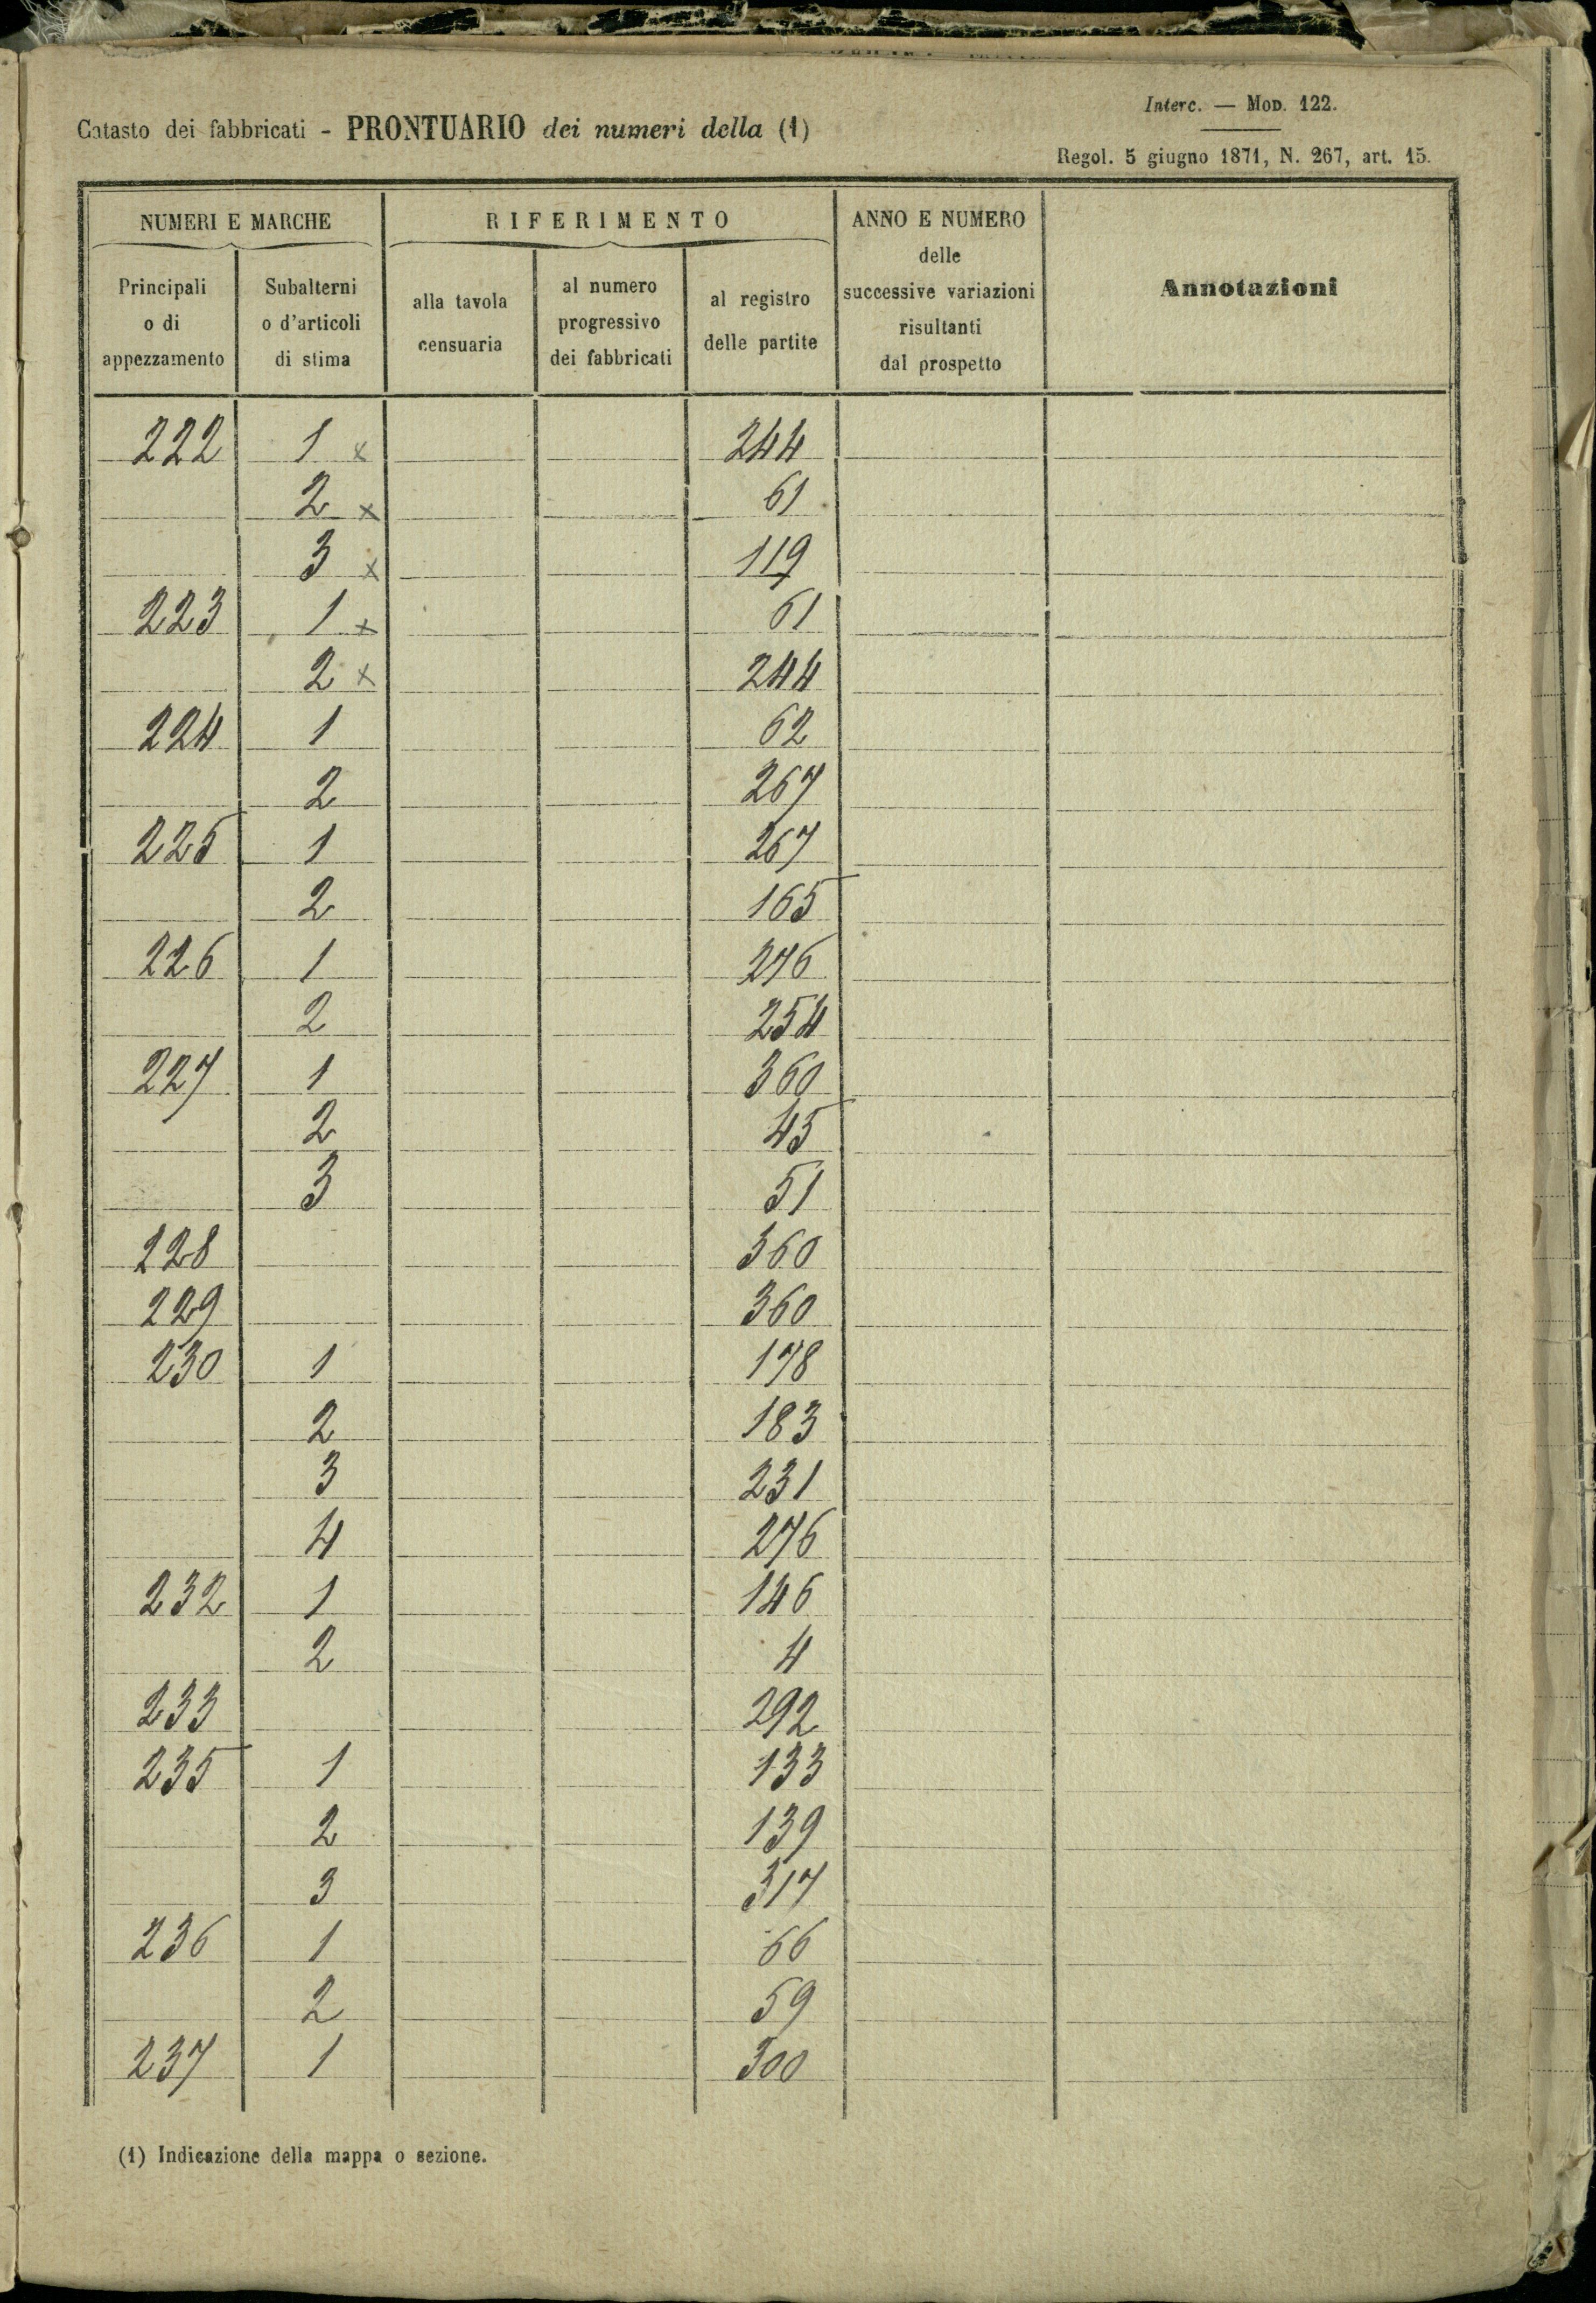 Interc. — Mod. 122.
Catasto dei fabbricati - PRONTUARIO dei numeri della (1)
Regol. 5 giugno 1871, N. 267, art. 15.
NUMERI E MARCHE
RIFERIMENTO
ANNO E NUMERO
delle
successive variazioni
risultanti
dal prospetto
Annotazioni
Principali
o di
appezzamento
Subalterni
o d'articoli
di stima
alla tavola
censuaria
al numero
progressivo
dei fabbricati
al registro
delle partite
222 1 x 244
2 x 61
3 x 119
223 1 x 61
2 x 244
224 1 62
2 267
225 1 267
2 165
226 1 276
2 254
227 1 360
2 45
3 51
228 360
229 360
230 1 178
2 183
3 231
4 276
232 1 146
2 4
233 292
235 1 133
2 139
3 317
236 1 66
2 59
237 1 300
(1) Indicazione della mappa o sezione.